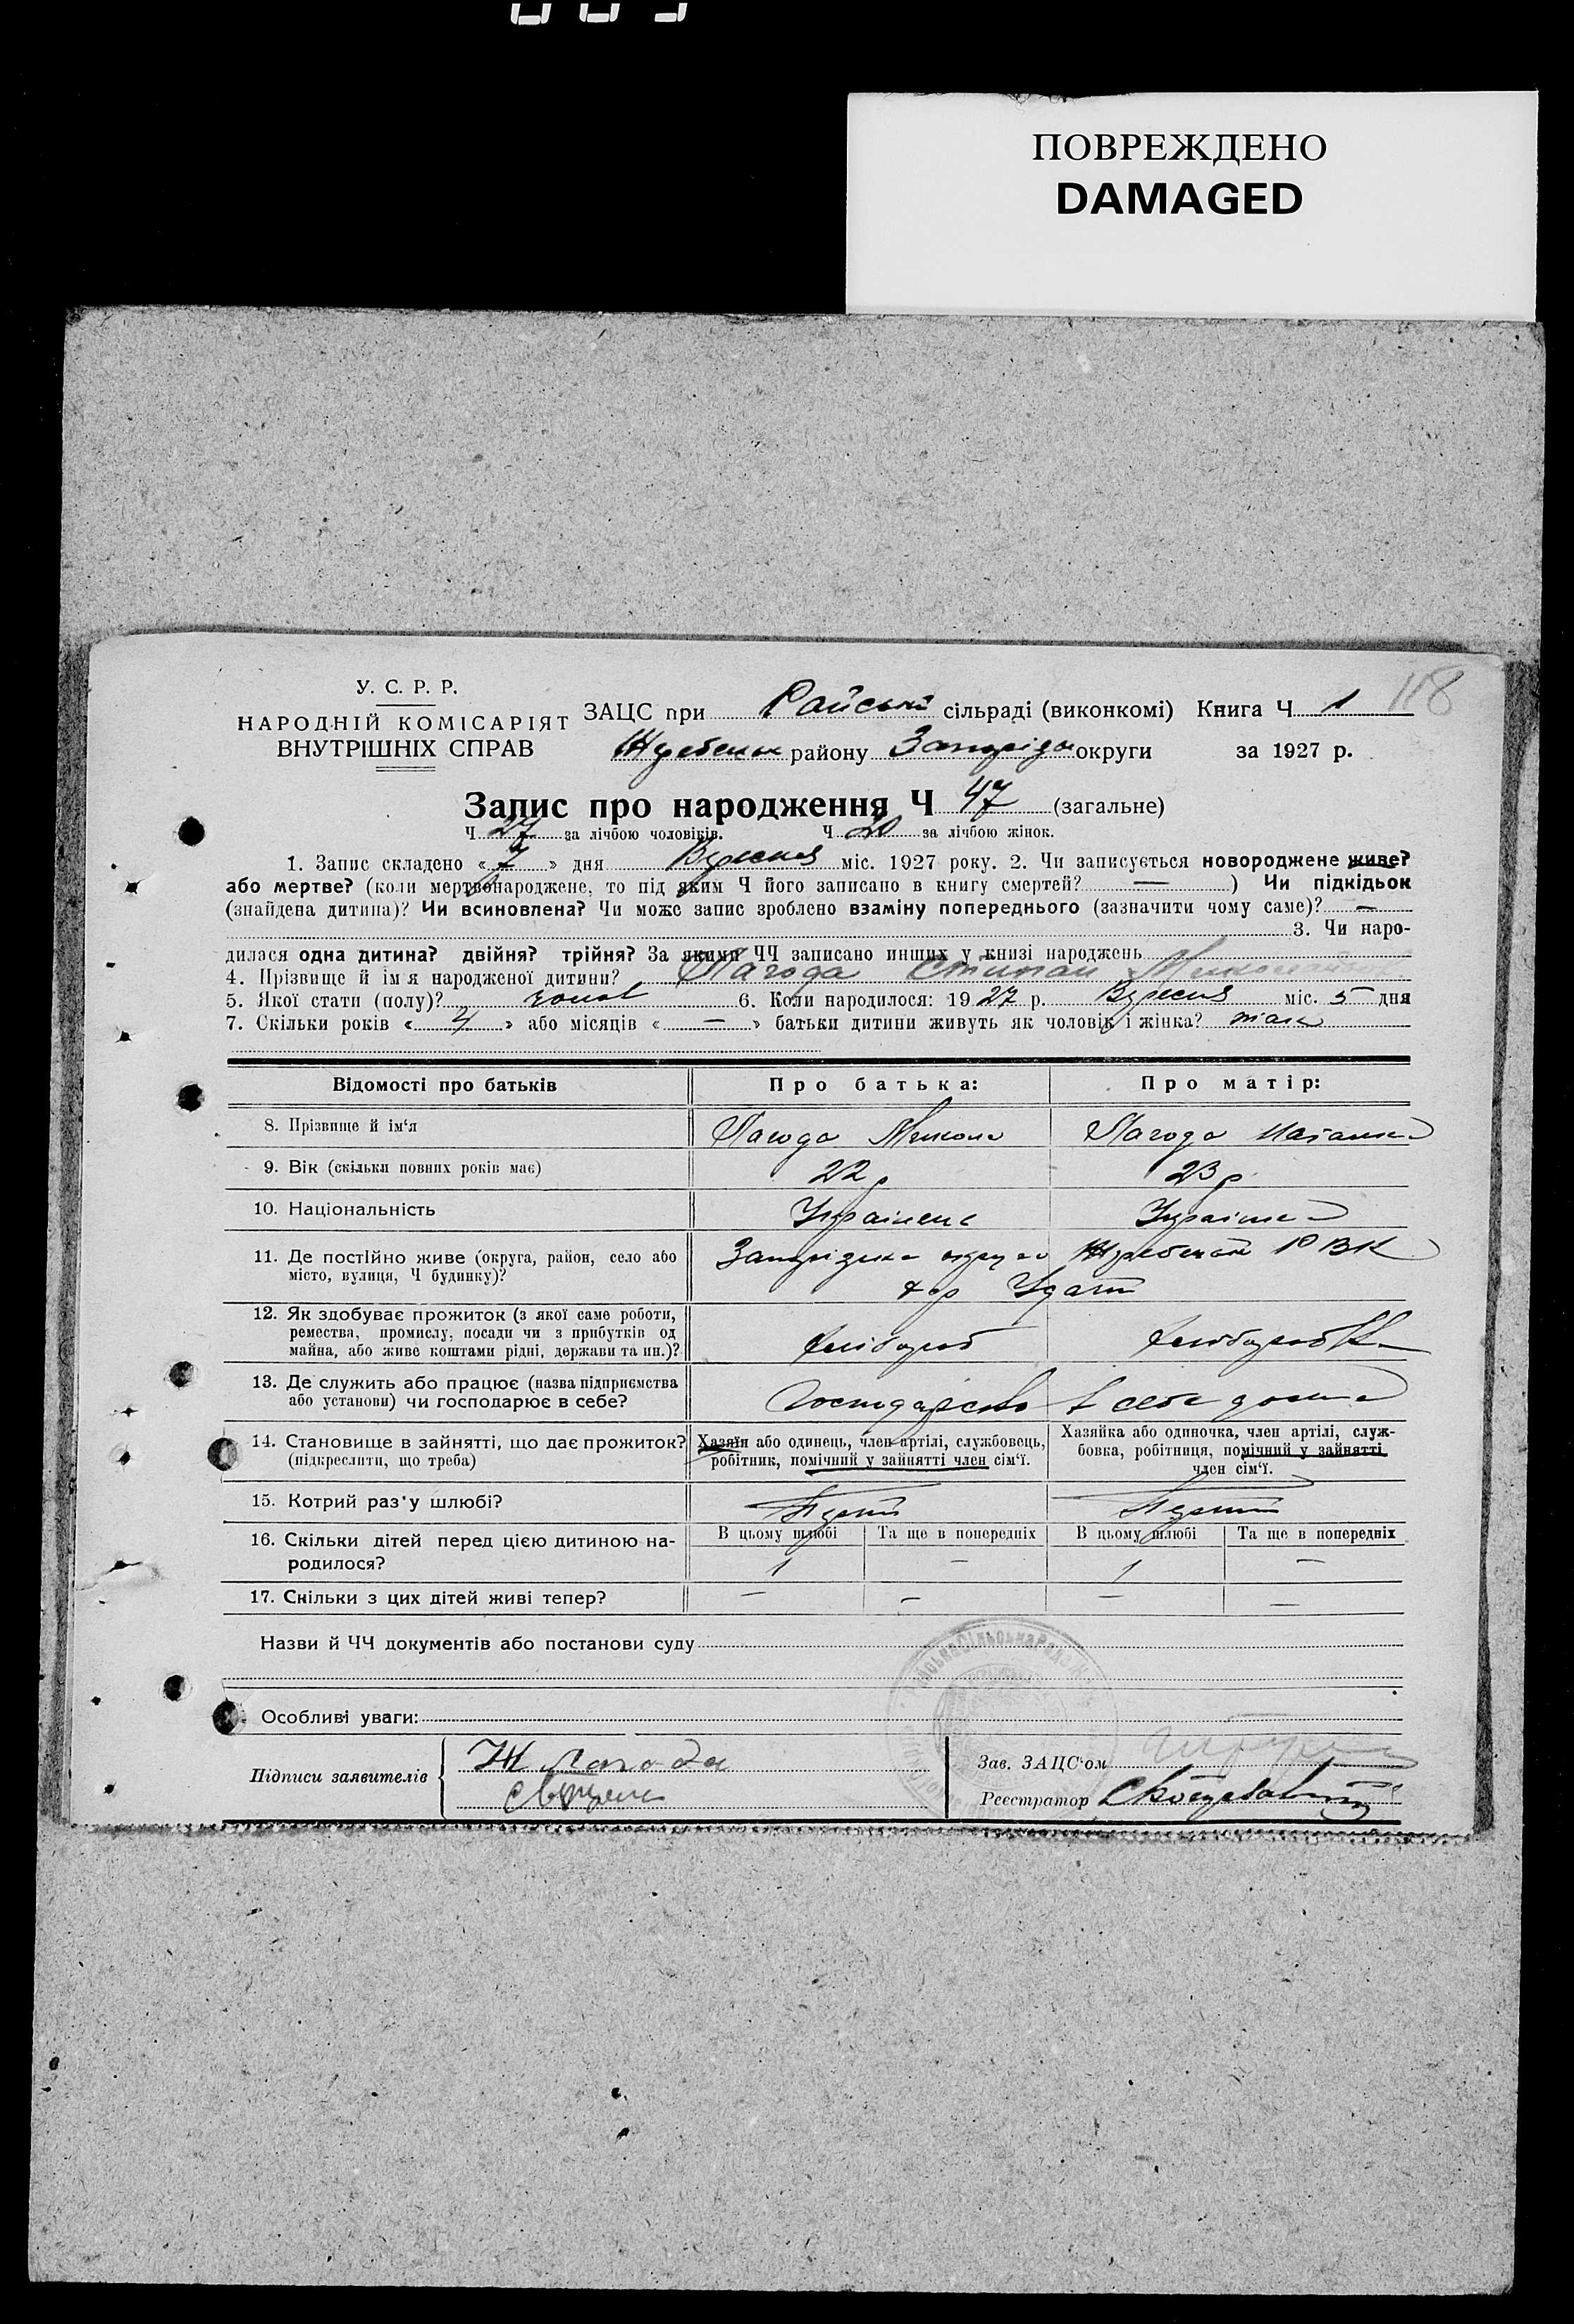 ПОВРЕЖДЕНО
DAMAGED
118
У. С. Р. Р.
НАРОДНІЙ КОМІСАРІЯТ
ВНУТРІШНІХ СПРАВ
ЗАЦС при Райській сільраді (виконкомі) Книга Ч 1
району округи за 1927 р.
Запис про народження Ч 47 (загальне)
Ч 27 за лічбою чоловіків. Ч 20 за лічбою жінок.
1. Запис складено « 7 » дня Вересня міс. 1927 року. 2. Чи записується новороджене живе?
або мертве? (коли мертвонароджене, то під яким Ч його записано в книгу смертей? — ) Чи підкідьок
(знайдена дитина)? Чи всиновлена? Чи може запис зроблено взаміну попереднього (зазначити чому саме)? —
3. Чи наро-
дилася одна дитина? двійня? трійня? За якими ЧЧ записано инших у книзі народжень
4. Прізвище й ім'я народженої дитини? Лагода Степан
5. Якої стати (полу)? 6. Коли народилося: 1927 р. Вересня міс. 5 дня
7. Скільки років « » або місяців « — » батьки дитини живуть як чоловік і жінка? так
Відомості про батьків Про батька: Про матір:
8. Прізвище й ім'я Лагода Микола Лагода
9. Вік (скільки повних років має) 22 р 23 р
10. Національність Українець Українка
11. Де постійно живе (округа, район, село або
місто, вулиця, Ч будинку)? Запорізька округа РВК
12. Як здобуває прожиток (з якої саме роботи,
ремества, промислу, посади чи з прибутків од
майна, або живе коштами рідні, держави та ин.)? Хлібороб
13. Де служить або працює (назва підприємства
або установи) чи господарює в себе? Господарство в себе дома
14. Становище в зайнятті, що дає прожиток?
(підкреслити, що треба)
Хазяїн або одинець, член артілі, службовець,
робітник, помічний у зайнятті член сім'ї.
Хазяйка або одиночка, член артілі, служ-
бовка, робітниця, помічний у зайнятті
член сім'ї.
15. Котрий раз у шлюбі?
16. Скільки дітей перед цією дитиною на-
родилося?
В цьому шлюбі Та ще в попередніх В цьому шлюбі Та ще в попередніх
1 — 1 —
17. Скільки з цих дітей живі тепер? — — — —
Назви й ЧЧ документів або постанови суду
Особливі уваги:
Підписи заявителів Лагода
Зав. ЗАЦС'ом
Реєстратор